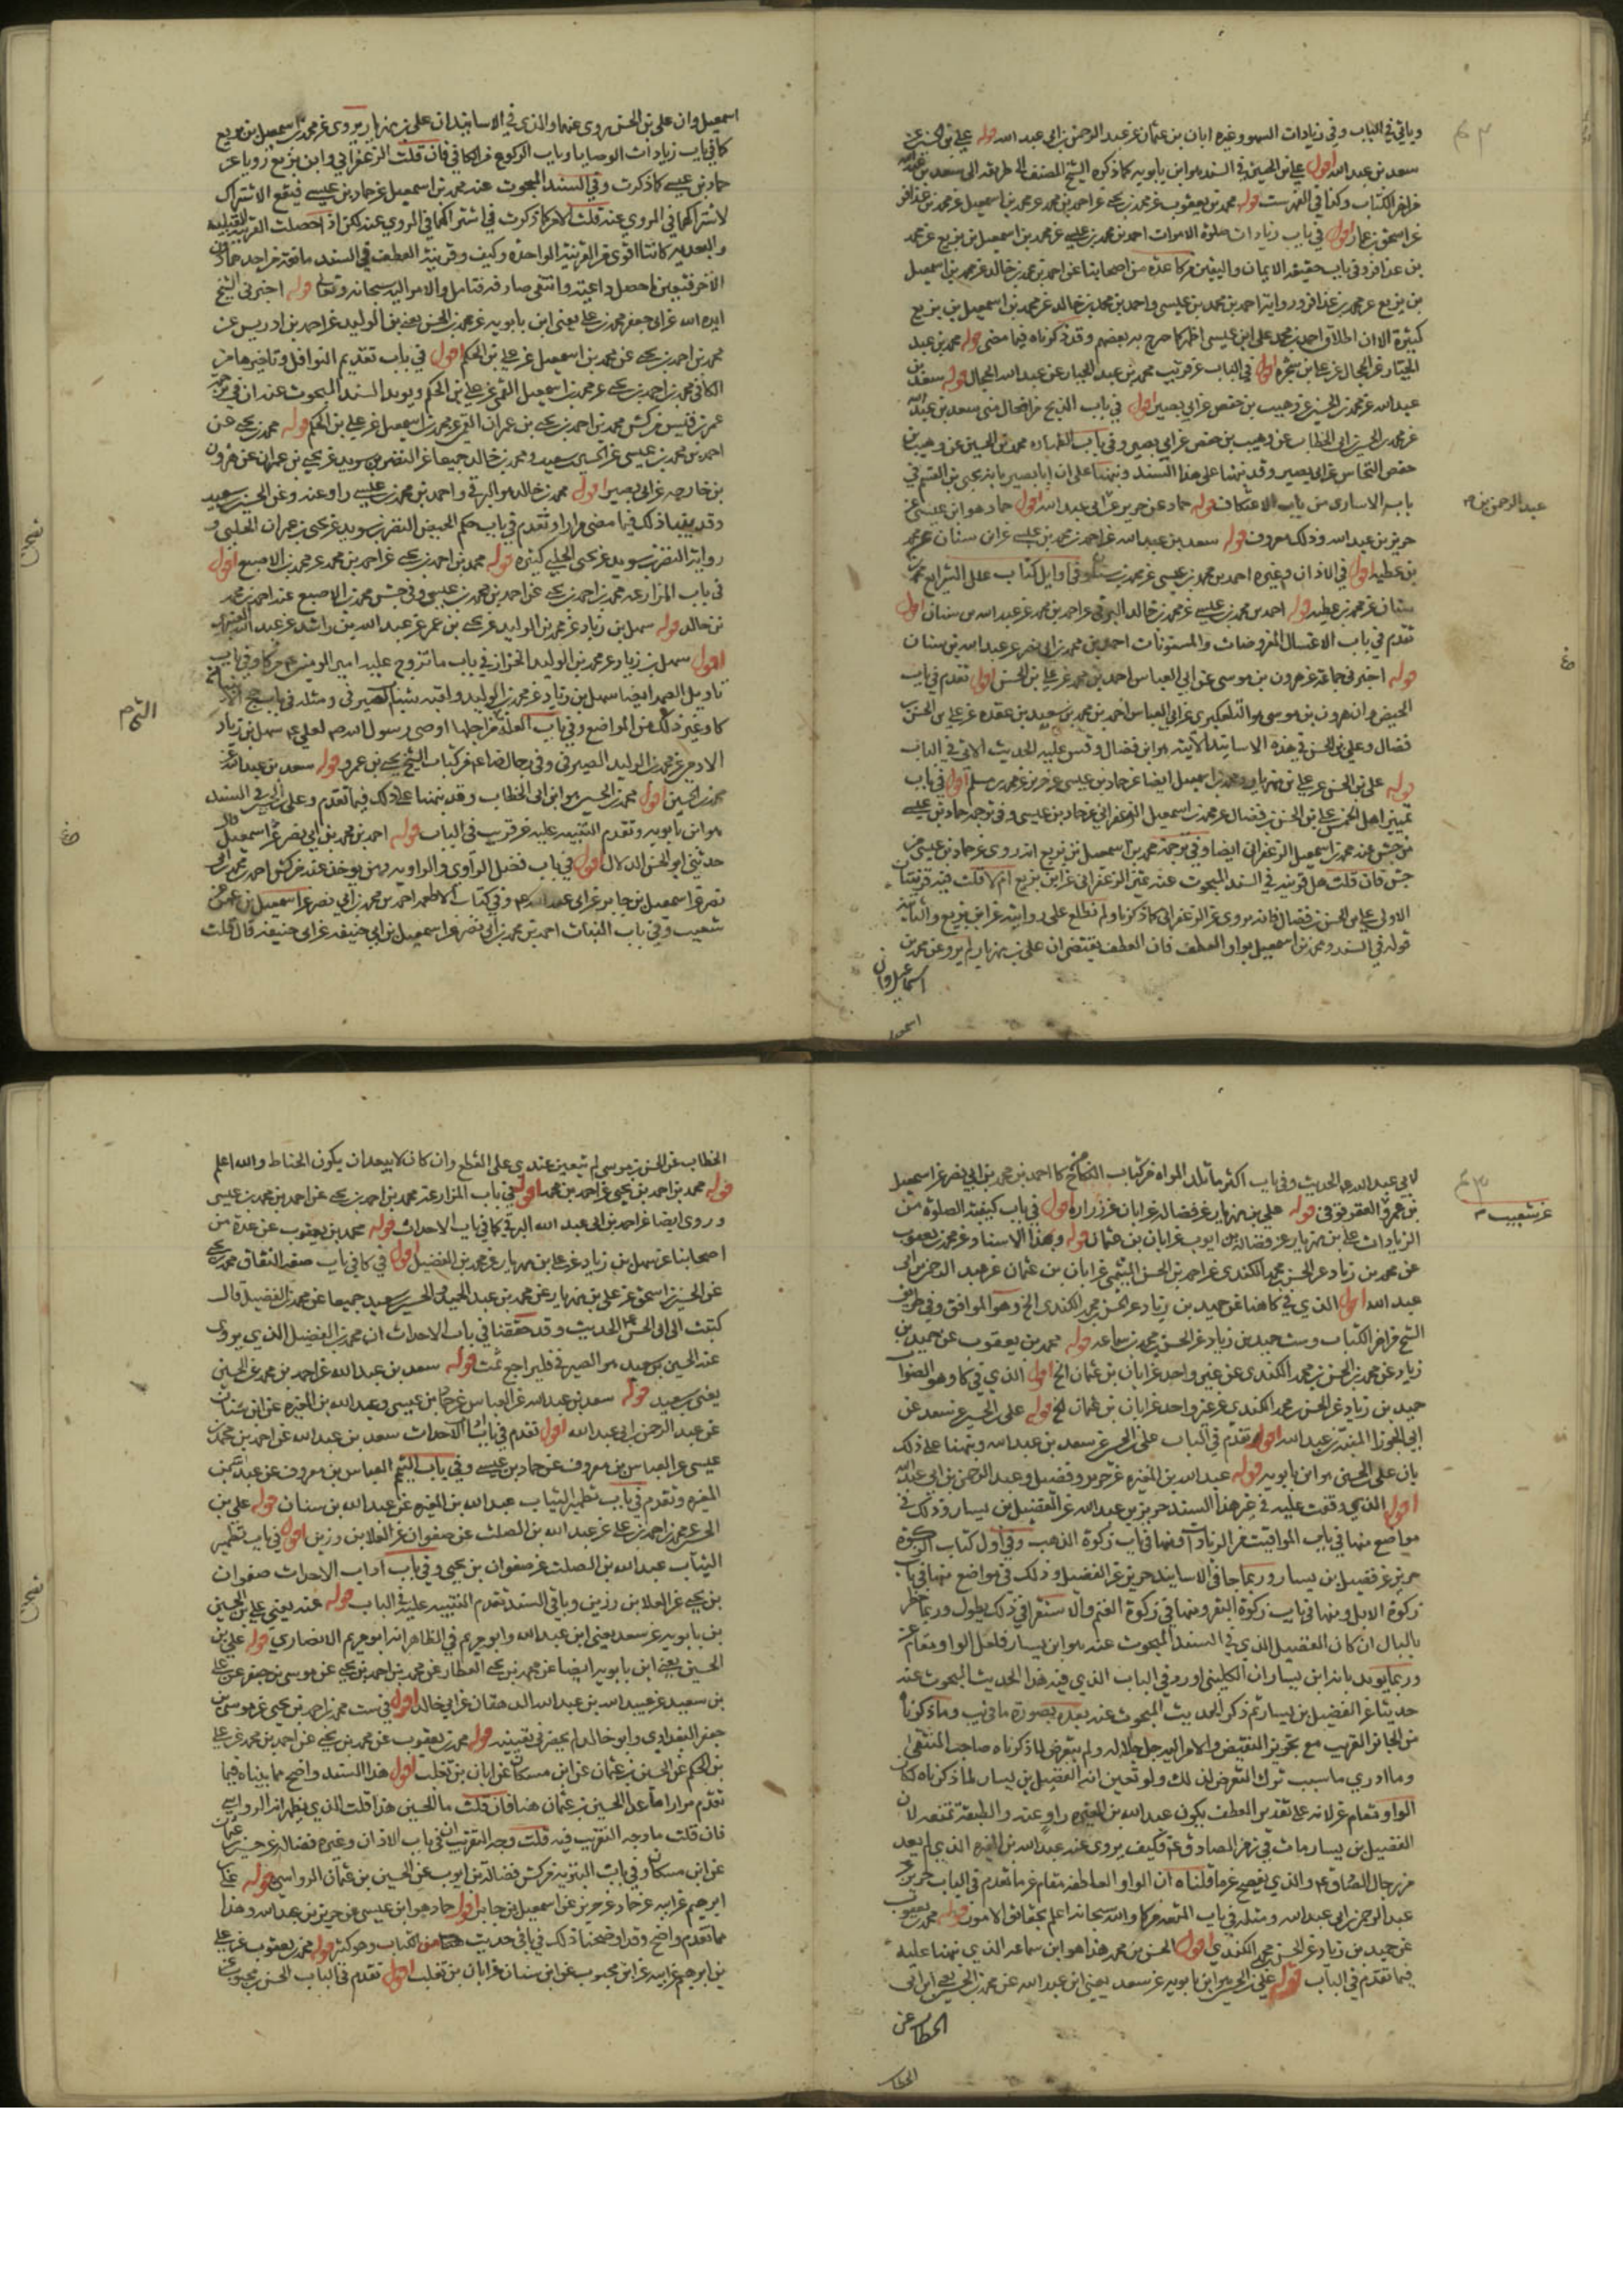 وياتي في الباب وفي زيادات السهو وغيره ابان بن عثمان عن عبد الرحمن بن ابي عبد الله قوله علي بن الحسين عن
سعد بن عبد الله اقول علي بن الحسين في السند هو ابن بابويه كما ذكره الشيخ المصنف في طريقه الى سعد بن عبد الله
في اخر الكتاب وكذا في الفهرست قوله محمد بن يعقوب عن محمد بن يحيى عن احمد بن محمد عن محمد بن اسمعيل عن محمد بن عذافر
عن اسحق بن عمار اقول في باب زيادات صلوة الاموات احمد بن محمد بن عيسى عن محمد بن اسمعيل بن بزيع عن محمد
بن عذافر وفي باب حقيقة الايمان واليقين من كا عدة من اصحابنا عن احمد بن محمد بن خالد عن محمد بن اسمعيل
بن بزيع عن محمد بن عذافر ورواية احمد بن محمد بن عيسى واحمد بن محمد بن خالد عن محمد بن اسمعيل بن بزيع
كثيرة الا ان اطلاق احمد بن محمد على ابن عيسى اظهر كما صرح به بعضهم وقد ذكرناه فيما مضى قوله محمد بن عبد
الجبار عن الحجال عن علي بن شجرة اقول في الباب عن قريب محمد بن عبد الجبار عن عبد الله الحجال قوله سعد بن
عبد الله عن محمد بن الحسين عن وهيب بن حفص عن ابي بصير اقول في باب الذبح سعد بن عبد الله
عن محمد بن الحسين ابي الخطاب عن وهيب بن حفص عن ابي بصير وفي باب الطهارة محمد بن الحسين عن وهيب بن
حفص النحاس عن ابي بصير وقد نبهنا على هذا السند ونبهنا على ان ابا بصير يابن يحيى بن القسم في
باب الاسارى من باب الاعتكاف قوله حماد عن حريز عن ابي عبد الله اقول حماد هو ابن عيسى عن
حريز بن عبد الله وذلك معروف قوله سعد بن عبد الله عن احمد بن محمد بن عيسى عن ابن سنان عن محمد
بن عطية اقول في الاذان وغيره احمد بن محمد بن عيسى عن محمد بن سنان وفي اوايل كتاب علل الشرايع محمد بن
سنان عن محمد بن عطية قوله احمد بن محمد بن عيسى عن محمد بن خالد البرقي عن احمد بن محمد عن عبد الله بن سنان اقول
تقدم في باب الاغسال المفروضات والمسنونات احمد بن محمد بن ابي نصر عن عبد الله بن سنان
قوله اخبرني جماعة عن هرون بن موسى عن ابي العباس احمد بن محمد عن علي بن الحسن اقول تقدم في باب
الحيض ان هرون بن موسى هو التلعكبري عن ابي العباس احمد بن محمد بن سعيد بن عقدة عن علي بن الحسن
فضال وعلي بن الحسن في هذه الاسانيد الاتية هو ابن فضال وقس عليه الحديث الاتي في الباب
قوله علي بن الحسن عن علي بن مهزيار ومحمد بن اسمعيل ايضا عن حماد بن عيسى عن حريز عن محمد بن مسلم اقول في باب
تمييز اهل الخمس علي بن الحسن بن فضال عن محمد بن اسمعيل الزعفراني عن حماد بن عيسى وفي ترجمة حماد بن عيسى
من جش عنه محمد بن اسمعيل الزعفراني ايضا وفي ترجمة محمد بن اسمعيل بن بزيع انه روى عن حماد بن عيسى من
جش فان قلت هل قرينة في السند المبحوث عنه تميز الزعفراني عن ابن بزيع ام لا قلت فيه قرينتان
الاولى علي بن الحسن بن فضال فانه يروي عن الزعفراني كما ذكرنا ولم نطلع على روايته عن ابن بزيع والثانية
قوله في السند ومحمد بن اسمعيل بواو العطف فان العطف يقتضي ان علي بن مهزيار لم يرو عن محمد بن
اسماعيل وان
عبد الرحمن بن
اسمعيل وان علي بن الحسن يروي عنهما والذي في الاسانيد ان علي بن مهزيار يروي عن محمد بن اسمعيل بن بزيع
كا في باب زيادات الوصايا وباب الركوع من الكافي فان قلت الزعفراني وابن بزيع رويا عن
حماد بن عيسى كما ذكرت وفي السند المبحوث عنه محمد بن اسمعيل عن حماد بن عيسى فيقع الاشتراك
لاشتراكهما في المروي عنه قلت الامر كما ذكرت في اشتراكهما في المروي عنه لكن اذا حصلت القرينة القبلية
والبعدية كانتا اقوى من القرينة الواحدة وكيف وقرينة العطف في السند مانعة
الاخر فتعين ما حصل داعيته وانتفى صارفه فتامل والامر اليه سبحانه وتعالى قوله اخبرني الشيخ
ايده الله عن ابي جعفر محمد بن علي يعني ابن بابويه عن محمد بن الحسن يعني بن الوليد عن احمد بن ادريس عن
محمد بن احمد بن يحيى عن محمد بن اسمعيل عن علي بن الحكم اقول في باب تقديم النوافل وتاخيرها من
الكافي محمد بن احمد بن يحيى عن محمد بن اسمعيل القمي عن علي بن الحكم ويويد السند المبحوث عنه ان في ترجمة
عمر بن قيس من كش محمد بن احمد بن يحيى بن عمران القمي عن محمد بن اسمعيل عن علي بن الحكم قوله محمد بن يحيى عن
احمد بن محمد بن عيسى عن الحسين بن سعيد ومحمد بن خالد جميعا عن النضر بن سويد عن يحيى بن عمران عن هرون
بن خارجة عن ابي بصير اقول محمد بن خالد هو البرقي واحمد بن محمد بن عيسى راو عنه وعن الحسين بن سعيد
وقد بينا ذلك فيما مضى مرارا وتقدم في باب حكم الحيض النضر بن سويد عن يحيى بن عمران الحلبي و
رواية النضر بن سويد عن يحيى الحلبي كثيرة قوله محمد بن احمد بن يحيى عن احمد بن محمد عن محمد بن الاصبع اقول
في باب المزار عنه محمد بن احمد بن يحيى عن احمد بن محمد بن عيسى وفي جش محمد بن الاصبع عنه احمد بن محمد
بن خالد قوله سهل بن زياد عن محمد بن الوليد عن يحيى بن عمر عن عبد الله بن راشد عن عبد الله
اقول سهل بن زياد عن محمد بن الوليد الخزاز في باب ما تزوج عليه امير المومنين ع من كا وفي باب
تاويل الصمد ايضا سهل بن زياد عن محمد بن الوليد ولقبه شباب الصيرفي ومثله في باب حج
كا وغير ذلك من المواضع وفي باب العلة من اجلها اوصى رسول الله ص لعلي ع سهل بن زياد
الادمي عن محمد بن الوليد الصيرفي وفي رجال الصادق ع من كتاب الشيخ يحيى بن عمرو قوله سعد بن عبد الله عن
محمد بن الحسين اقول محمد بن الحسين هو ابن ابي الخطاب وقد نبهنا على ذلك فيما تقدم وعلي بن الحسين في السند
هو ابن بابويه وتقدم التنبيه عليه عن قريب في الباب قوله احمد بن محمد بن ابي نصر عن اسمعيل قال
حدثني ابو الحسن الدلال اقول في باب فضل الراوي والراوية ومن يوخذ عنه من كش احمد بن محمد بن ابي
نصر عن اسمعيل بن جابر عن ابي عبد الله ع وفي كتاب الاطعمة احمد بن محمد بن ابي نصر عن اسمعيل بن عمر عن
شعيب وفي باب النبات احمد بن محمد بن ابي نصر عن اسمعيل بن ابي حنيفة عن ابي حنيفة قال قلت
لابي عبد الله ع الحديث وفي باب اكثر ما تلد المراة من كتاب النكاح كا احمد بن محمد بن ابي نصر عن اسمعيل
بن عمر عن العقرقوفي قوله علي بن مهزيار عن فضالة عن ابان عن زرارة اقول في باب كيفية الصلوة من
الزيادات علي بن مهزيار عن فضالة بن ايوب عن ابان بن عثمان قوله وبهذا الاسناد عن محمد بن يعقوب
عن محمد بن زياد عن الحسن بن محمد الكندي عن احمد بن الحسن الميثمي عن ابان بن عثمان عن عبد الرحمن بن ابي
عبد الله اقول الذي في كا هنا عن حميد بن زياد عن الحسن بن محمد الكندي الخ وهو الموافق وفي طريق
الشيخ في اخر الكتاب وست حميد بن زياد عن الحسن بن محمد بن سماعة قوله محمد بن يعقوب عن حميد بن
زياد عن محمد بن الحسن بن محمد الكندي عن غير واحد عن ابان بن عثمان الخ اقول الذي في كا وهو الصواب
حميد بن زياد عن الحسن بن محمد الكندي عن غير واحد عن ابان بن عثمان الخ قوله علي بن الحسين عن سعد عن
ابي الجوزا المنبه بن عبد الله اقول تقدم في الباب علي بن الحسين عن سعد بن عبد الله ونبهنا على ذلك
بان علي بن الحسين هو ابن بابويه قوله عبد الله بن المغيرة عن حريز وفضيل وعبد الرحمن بن ابي عبد الله
اقول الذي وقفت عليه في غير هذا السند حريز بن عبد الله عن الفضيل بن يسار وذلك في
مواضع منها في باب المواقيت من الزيادات ومنها في باب زكوة الذهب وفي اول كتاب الزكوة
حريز عن فضيل بن يسار وربما جا في الاسانيد حريز عن الفضيل وذلك في مواضع منها في باب
زكوة الابل ومنها في باب زكوة البقر ومنها في زكوة الغنم والاستقراء في ذلك يطول وربما خطر
بالبال ان كان الفضيل الذي في السند المبحوث عنه هو ابن يسار فلعل الواو مقام عن
وربما يويد بانه ابن يسار ان الكليني اورد في الباب الذي فيه هذا الحديث المبحوث عنه
حديثا عن الفضيل بن يسار ثم ذكر الحديث المبحوث عنه بعده بصورة ما في يب وما ذكرنا
من الجائز القريب مع تجويز النقيض والامر اليه جل جلاله ولم يتعرض لما ذكرناه صاحب المنتقى
وما ادري ما سبب ترك التعرض لذلك ولو تعين انه الفضيل بن يسار لما ذكرناه لكان
الواو مقام عن لانه على تقدير العطف يكون عبد الله بن المغيرة راو عنه والطبقة تمنعه لان
الفضيل بن يسار مات في زمن الصادق ع فكيف يروي عنه عبد الله بن المغيرة الذي لم يعد
من رجال الصادق ع والذي يفصح عن ما قلناه ان الواو العاطفة مقام عن ما تقدم في الباب حريز عن
عبد الرحمن بن ابي عبد الله ومثله في باب المتعة من كا والله سبحانه اعلم بحقائق الامور قوله محمد بن يعقوب
عن حميد بن زياد عن الحسن بن محمد الكندي اقول الحسن بن محمد هذا هو ابن سماعة الذي نبهنا عليه
فيما تقدم في الباب قوله علي بن الحسين ابن بابويه عن سعد يعني ابن عبد الله عن محمد بن الحسين يعني ابن ابي
الخطاب عن
عن شعيب
الخطاب عن الحسن بن موسى لم يتعين عندي على القطع وان كان لا يبعد ان يكون الخياط والله اعلم
قوله محمد بن احمد بن يحيى عن احمد بن محمد اقول في باب المزار عنه محمد بن احمد بن يحيى عن احمد بن محمد بن عيسى
وروى ايضا عن احمد بن ابي عبد الله البرقي كما في باب الاحداث قوله محمد بن يعقوب عن عدة من
اصحابنا عن سهل بن زياد عن علي بن مهزيار عن محمد بن الفضيل اقول في كا في باب صفة النفاق محمد بن يحيى
عن الحسين بن اسحق عن علي بن مهزيار عن محمد بن عبد الحميد والحسين بن سعيد جميعا عن محمد بن الفضيل قال
كتبت الى ابي الحسن ع الحديث وقد حققنا في باب الاحداث ان محمد بن الفضيل الذي يروي
عنه الحسين بن سعيد هو الصيرفي فليراجع ثمت قوله سعد بن عبد الله عن احمد بن محمد عن الحسين
يعني بن سعيد قوله سعد بن عبد الله عن العباس عن حماد بن عيسى وعبد الله بن المغيرة عن ابن سنان
عن عبد الرحمن بن ابي عبد الله اقول تقدم في باب الاحداث سعد بن عبد الله عن احمد بن محمد بن
عيسى عن العباس بن معروف عن حماد بن عيسى وفي باب التيمم العباس بن معروف عن عبد الله بن
المغيرة وتقدم في باب تطهير الثياب عبد الله بن المغيرة عن عبد الله بن سنان قوله علي بن
الحسين عن محمد بن احمد بن علي عن عبد الله بن الصلت عن صفوان عن العلا بن رزين اقول في باب تطهير
الثياب عبد الله بن الصلت عن صفوان بن يحيى وفي باب اداب الاحداث صفوان
بن يحيى عن العلا بن رزين وباقي السند تقدم التنبيه عليه في الباب قوله عنه يعني علي بن الحسين
بن بابويه عن سعد يعني ابن عبد الله وابو مريم في الظاهر انه ابو مريم الانصاري قوله علي بن
الحسين يعني ابن بابويه ايضا عن محمد بن يحيى العطار عن محمد بن احمد بن يحيى عن موسى بن جعفر عن علي
بن سعيد عن عبيد الله بن عبد الله الدهقان عن ابي خالد اقول في ست محمد بن احمد بن يحيى عن موسى بن
جعفر البغدادي وابو خالد لم يحضرني تعيينه قوله محمد بن يعقوب عن محمد بن يحيى عن احمد بن محمد عن علي
بن الحكم عن الحسين بن عثمان عن ابن مسكان عن ابان بن تغلب اقول هذا السند واضح مما بيناه فيما
تقدم مرارا ما عدا الحسين بن عثمان هنا فان قلت ما الحسين هذا قلت الذي يظهر انه الرواسي
فان قلت ما وجه التقريب فيه قلت وجه التقريب ان في باب الاذان وغيره فضالة عن حسين بن عثمان
عن ابن مسكان وفي باب التنزيه من كش فضالة بن ايوب عن الحسين بن عثمان الرواسي قوله علي بن
ابرهيم عن ابيه عن حماد عن حريز عن اسمعيل بن جابر اقول حماد هو ابن عيسى عن حريز بن عبد الله وهذا
مما تقدم واضح وقد اوضحنا ذلك في باقي حديث من الكتاب وهو كثير قوله محمد بن يعقوب عن علي
بن ابرهيم عن ابيه عن ابن محبوب عن ابن سنان عن ابان بن تغلب اقول تقدم في الباب الحسن بن محبوب عن